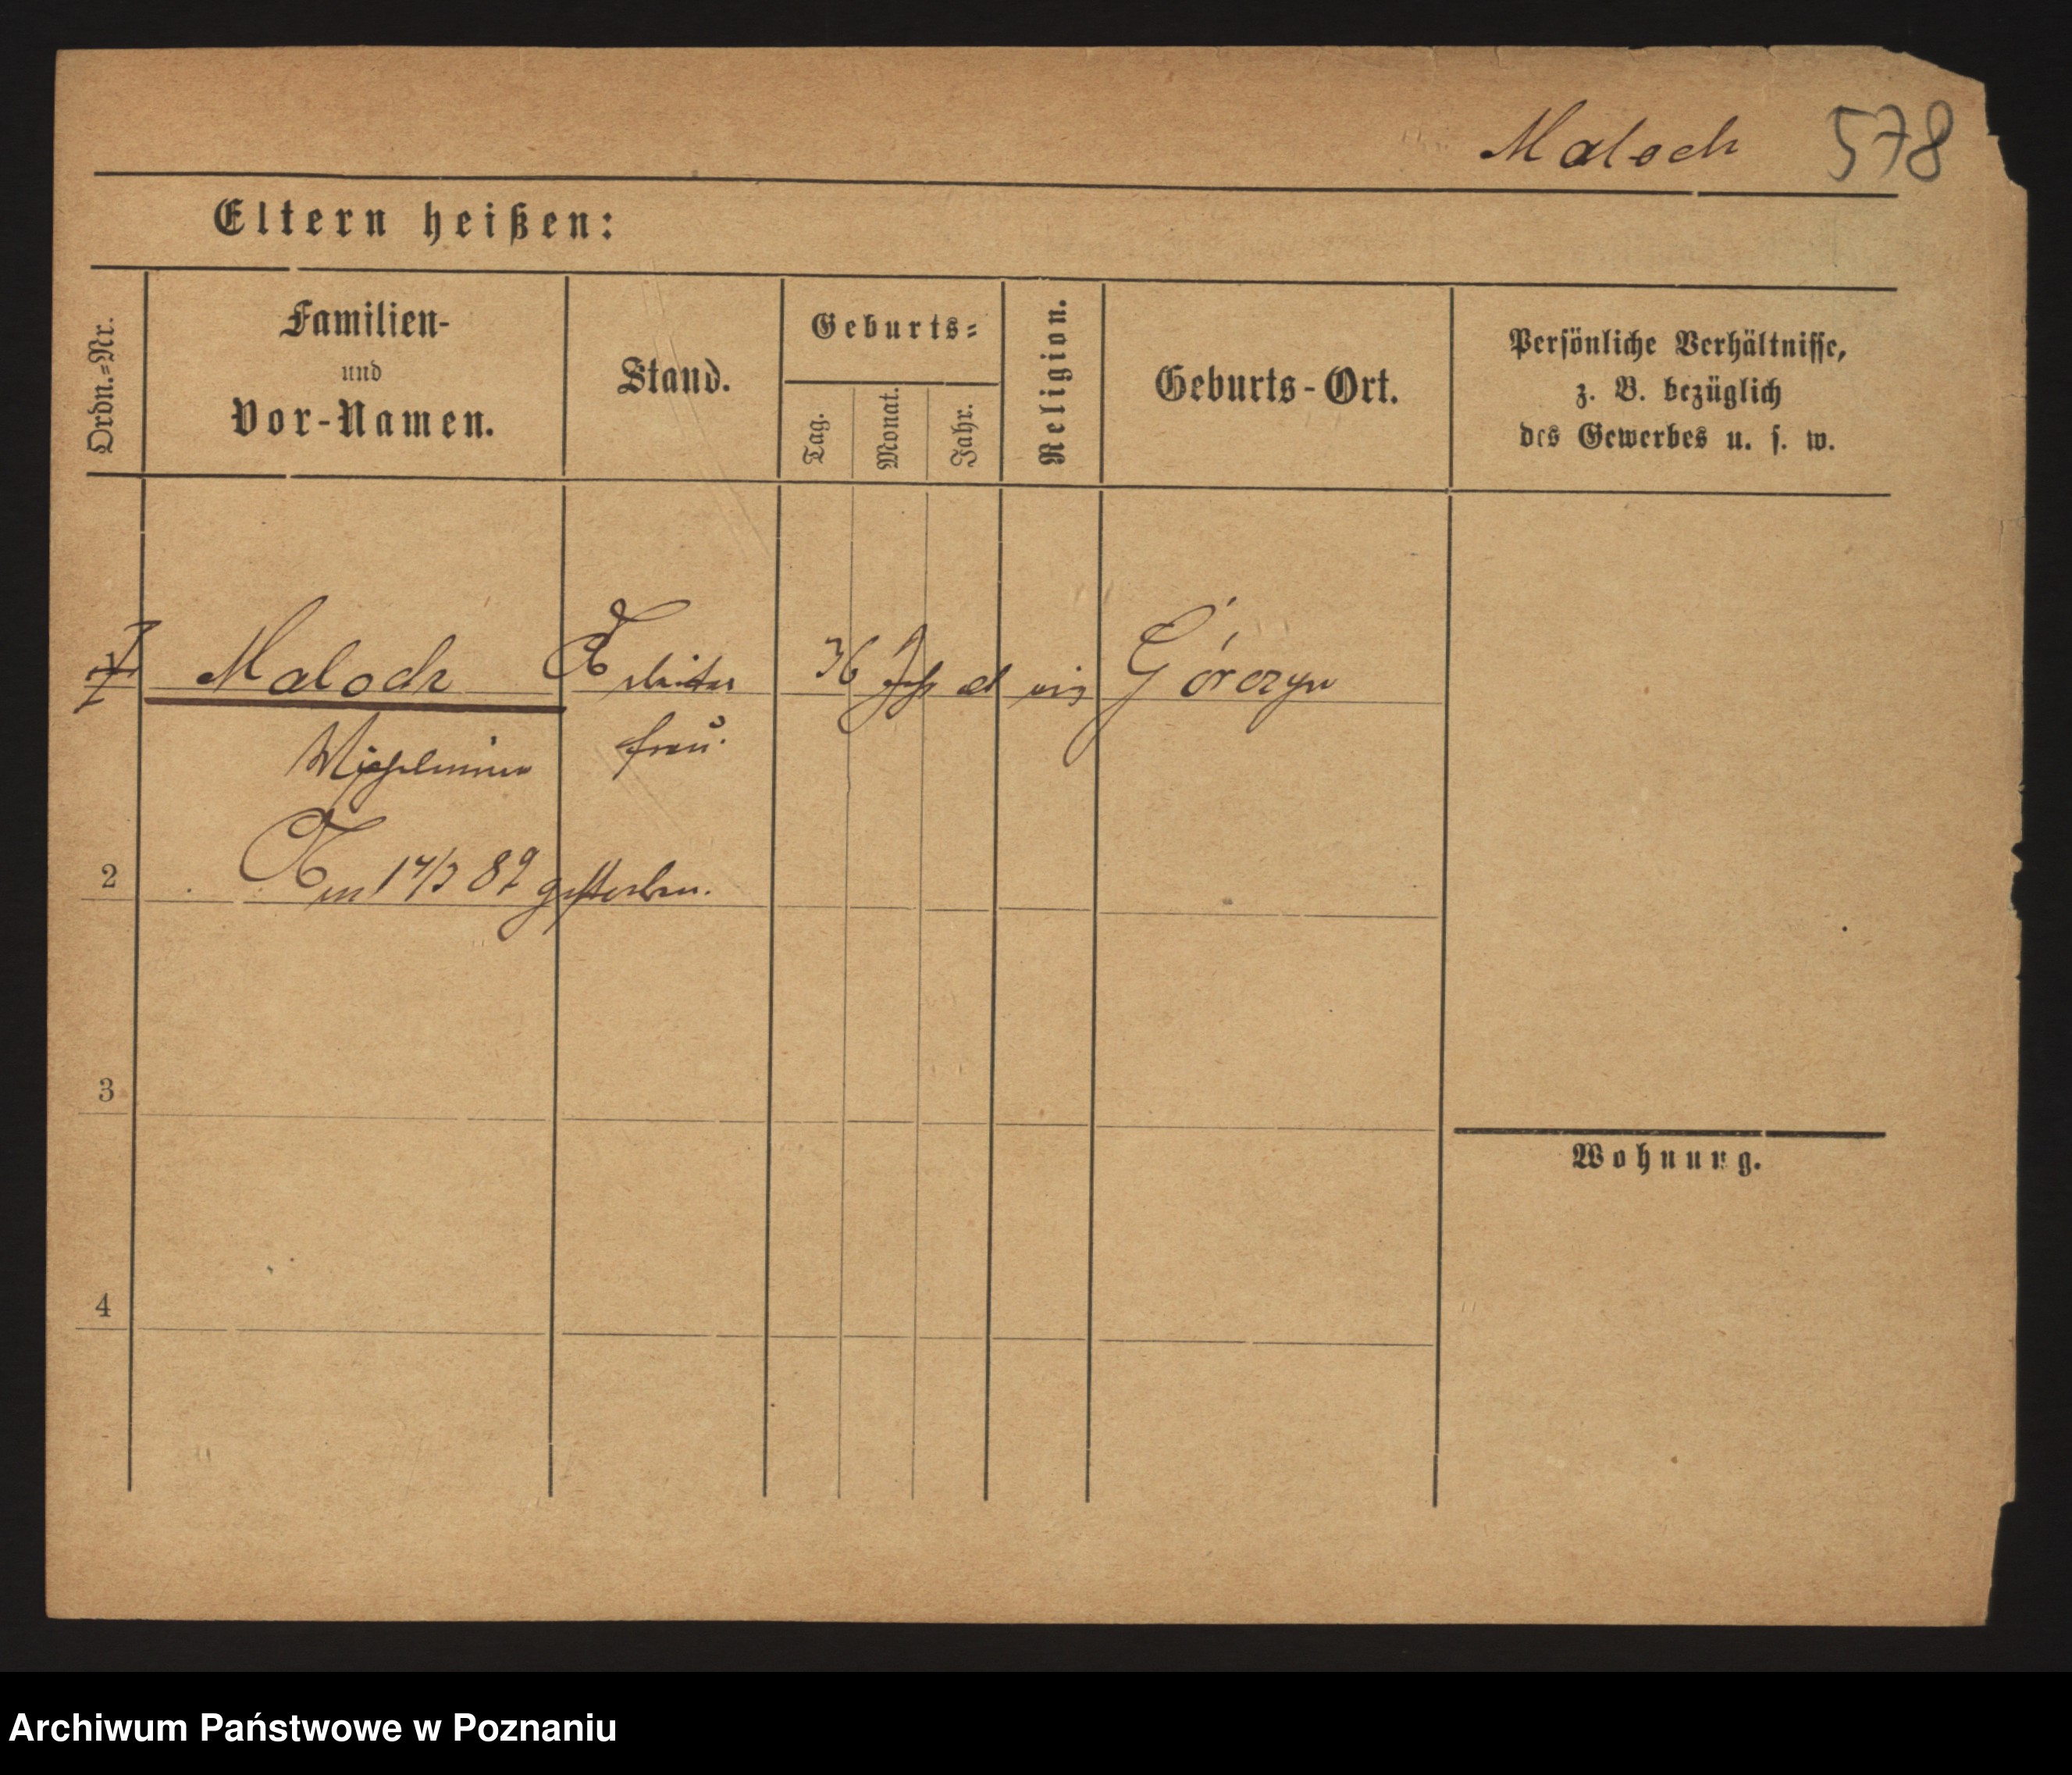 Maloch 578
Eltern heißen:
Ordn.-Nr.
Familien-
und
Vor-Namen.
Stand.
Geburts-
Tag.
Monat.
Jahr.
Religion.
Geburts-Ort.
Persönliche Verhältnisse,
z. B. bezüglich
des Gewerbes u. s. w.
1 Maloch Arbeiter 36 Jahr alt Górczyn
frau.
2 Am 17/3 82 gestorben.
3
4
Wohnung.
Archiwum Państwowe w Poznaniu